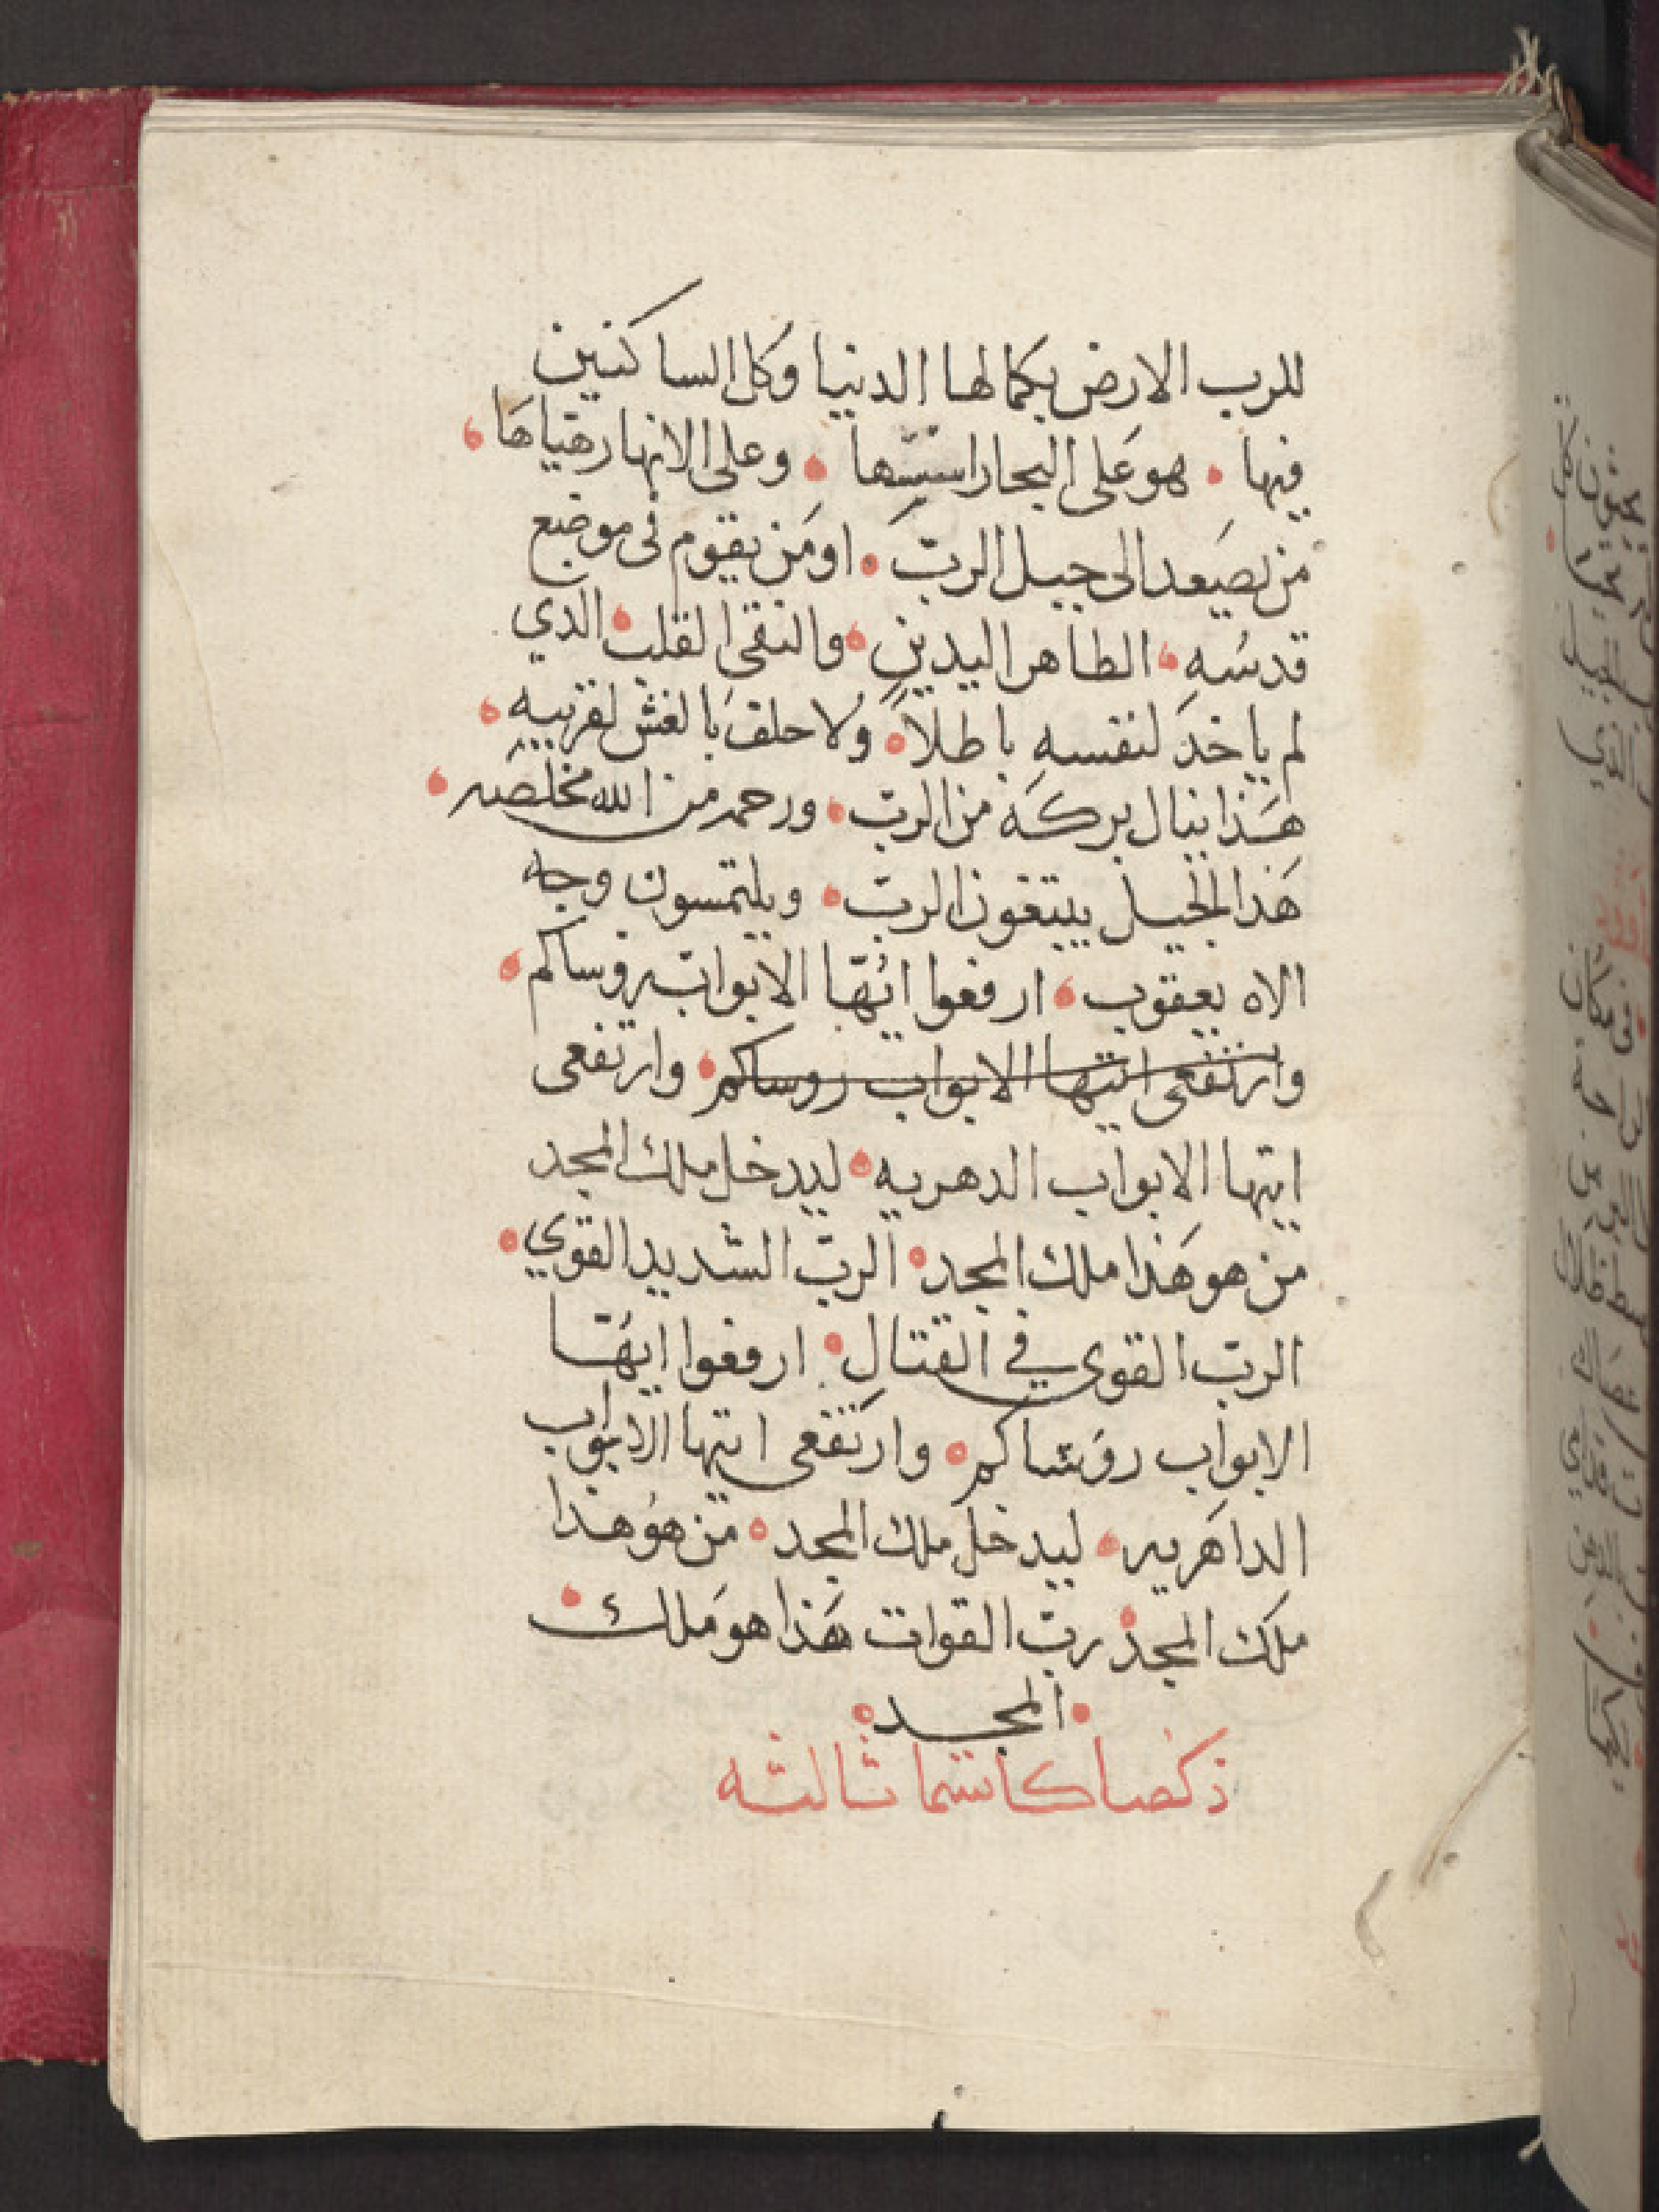 للرب الارض بكمالها الدنيا وكل الساكنين
فيها • هو على البحار اسسها • وعلى الانهار هياها •
من يصعد الى جبل الرب • او من يقوم فى موضع
قدسه • الطاهر اليدين • والنقى القلب • الدي
لم ياخد لنفسه باطلا • ولا حلف بالغش لقريبه •
هذا ينال بركه من الرب • ورحمه من الله مخلصه •
هذا الجيل يبتغون الرب • ويلتمسون وجه
الاه يعقوب • ارفعوا ايها الابواب روساكم •
وارتفعى ايتها الابواب روساكم • وارتفعى
ايتها الابواب الدهريه • ليدخل ملك المجد
من هو هذا ملك المجد • الرب الشديد القوي •
الرب القوى في القتال • ارفعوا ايها
الابواب روساكم • وارتفعى ايتها الابواب
الداهريه • ليدخل ملك المجد • من هو هذا
ملك المجد • رب القوات هذا هو ملك •
• المجد •
ذكصا كاتسما ثالثه